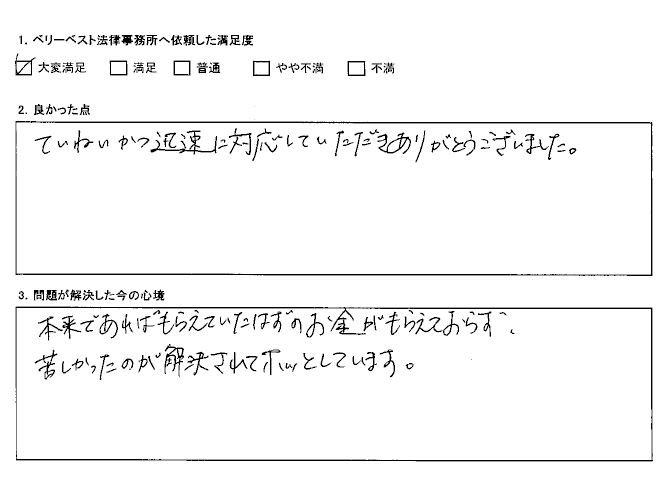 1. ベリーベスト法律事務所へ依頼した満足度
☑ 大変満足 □ 満足 □ 普通 □ やや不満 □ 不満
2. 良かった点
ていねいかつ迅速に対応していただきありがとうございました。
3. 問題が解決した今の心境
本来であればもらえていたはずのお金がもらえておらず、
苦しかったのが解決されてホッとしています。